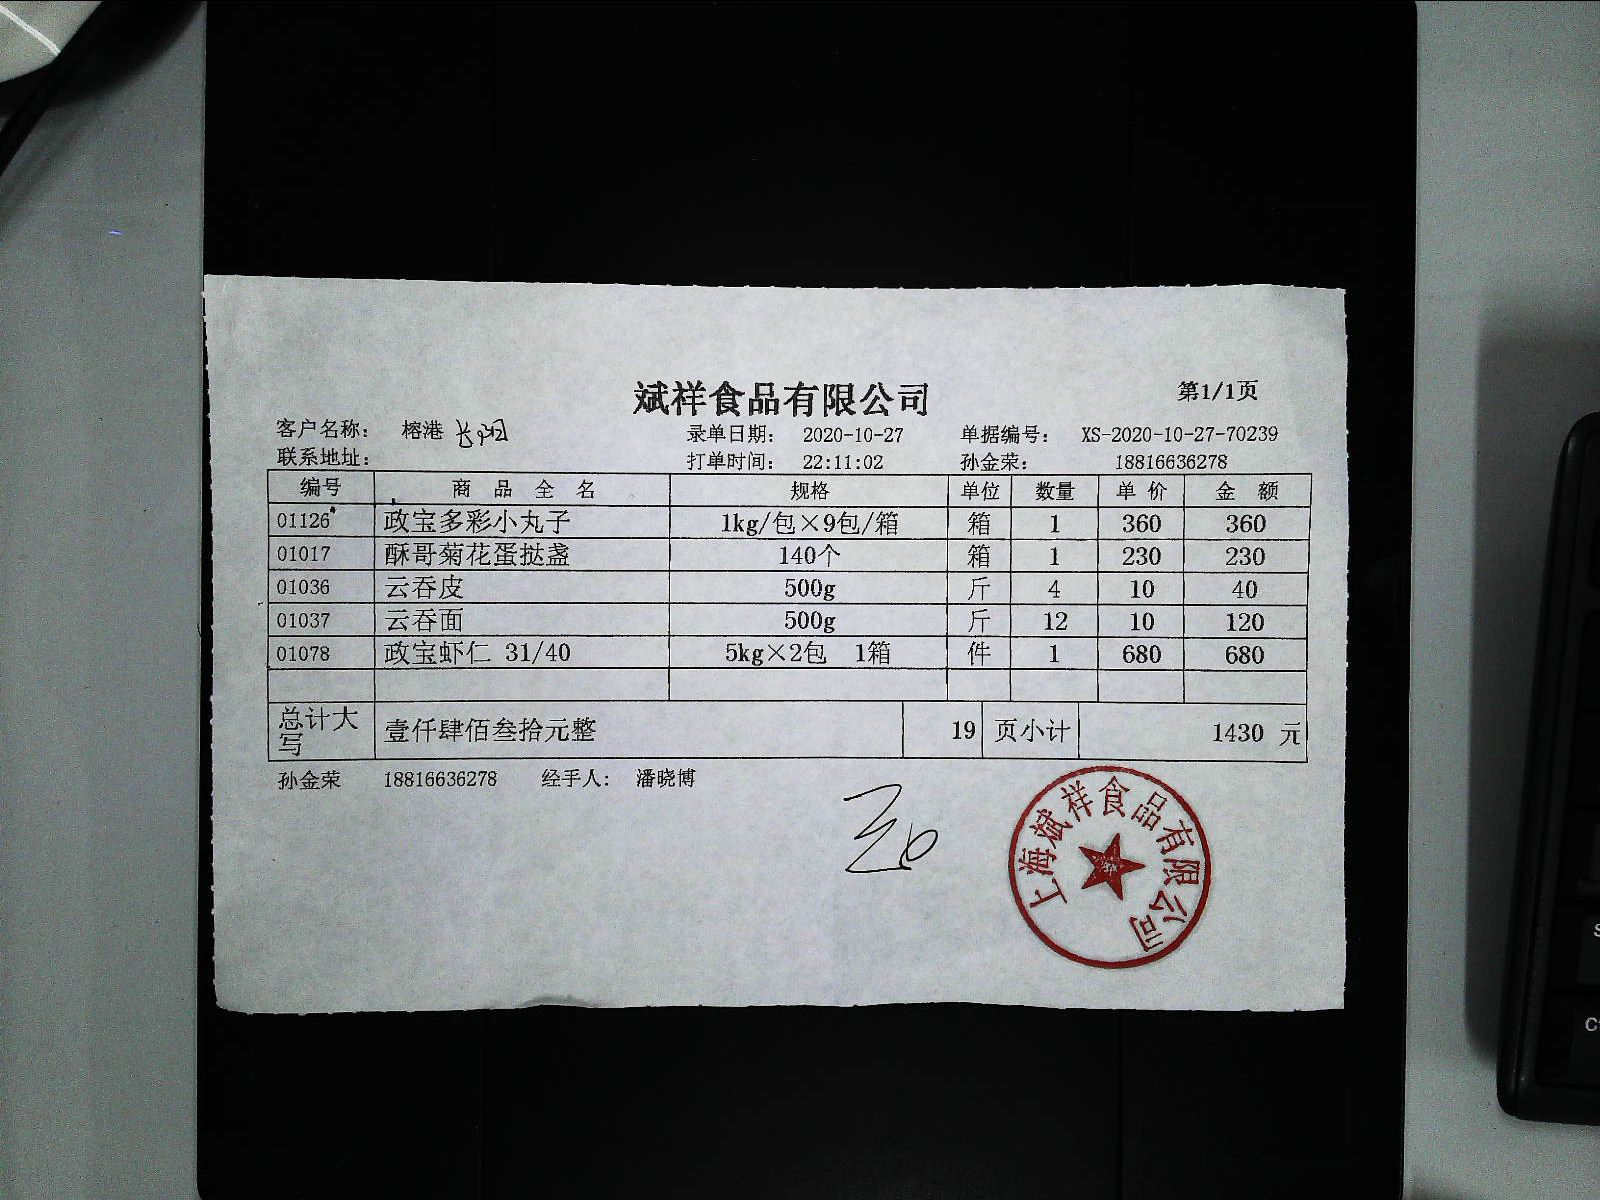 斌祥食品有限公司
第1/1页
客户名称： 榕港 长阳 录单日期： 2020-10-27 单据编号： XS-2020-10-27-70239
联系地址： 打单时间： 22:11:02 孙金荣： 18816636278
编号 商 品 全 名 规格 单位 数量 单 价 金 额
01126 政宝多彩小丸子 1kg/包×9包/箱 箱 1 360 360
01017 酥哥菊花蛋挞盏 140个 箱 1 230 230
01036 云吞皮 500g 斤 4 10 40
01037 云吞面 500g 斤 12 10 120
01078 政宝虾仁 31/40 5kg×2包 1箱 件 1 680 680
总计大写 壹仟肆佰叁拾元整 19 页小计 1430 元
孙金荣 18816636278 经手人： 潘晓博
上海斌祥食品有限公司